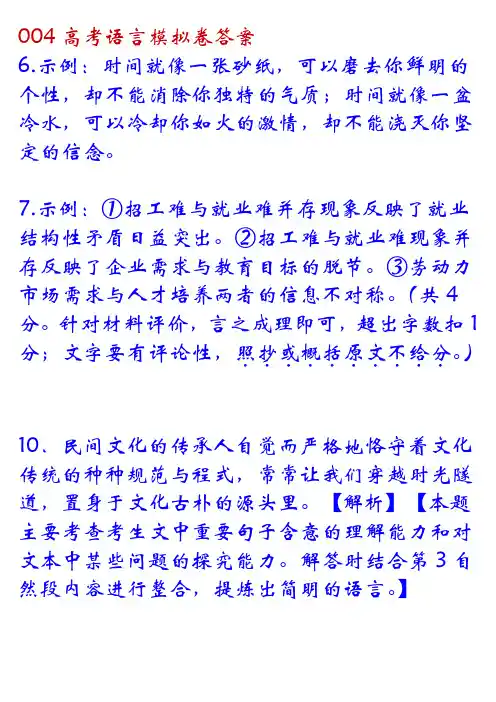 004 高考语言模拟卷答案
6.示例：时间就像一张砂纸，可以磨去你鲜明的
个性，却不能消除你独特的气质；时间就像一盆
冷水，可以冷却你如火的激情，却不能浇灭你坚
定的信念。
7.示例：①招工难与就业难并存现象反映了就业
结构性矛盾日益突出。②招工难与就业难现象并
存反映了企业需求与教育目标的脱节。③劳动力
市场需求与人才培养两者的信息不对称。（共 4
分。针对材料评价，言之成理即可，超出字数扣 1
分；文字要有评论性，照抄或概括原文不给分。）
10、民间文化的传承人自觉而严格地恪守着文化
传统的种种规范与程式，常常让我们穿越时光隧
道，置身于文化古朴的源头里。【解析】【本题
主要考查考生文中重要句子含意的理解能力和对
文本中某些问题的探究能力。解答时结合第 3 自
然段内容进行整合，提炼出简明的语言。】